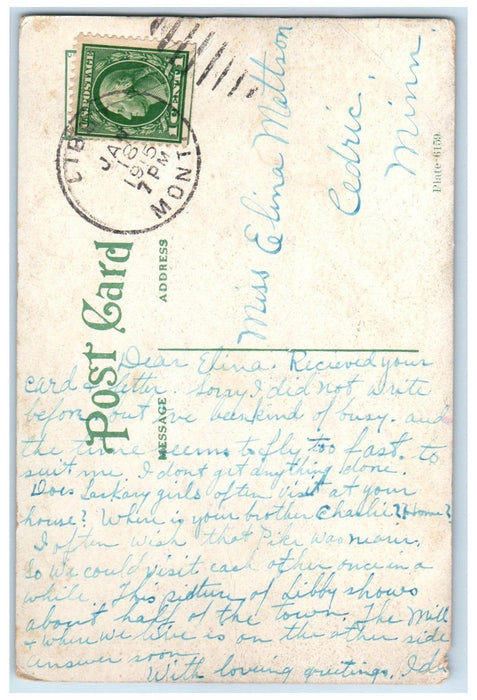 U.S. POSTAGE
1 CENT 1
LIBBY
JAN
18
1915
7 PM
MONT.
Post Card
ADDRESS
MESSAGE
Plate 6159
Miss Elina Mattson
Cedric,
Minn.
Dear Elina. Recieved your
card + letter. Sorry I did not write
before but I've been kind of busy. and
the time seems to fly too fast. to
suit me. I dont get anything done.
Does girls often visit at your
house? Where is your brother Charlie? Home?
I often wish that was nearer.
So we could visit each other once in a
while. This picture of Libby shows
about half of the town. The Mill
+ where we live is on the other side
answer soon.
With loving greetings. Ida